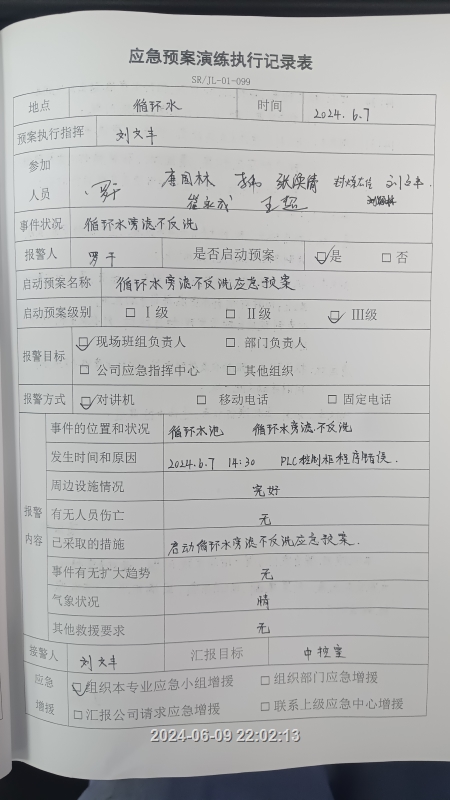 应急预案演练执行记录表
SR/JL-01-099
地点 循环水 时间 2024.6.7
预案执行指挥 刘文丰
参加人员 罗干 唐国林 李伟 刘文丰
崔永成 王超
事件状况 循环水旁滤不反洗
报警人 罗干 是否启动预案 ☑是 □否
启动预案名称 循环水旁滤不反洗应急预案
启动预案级别 □Ⅰ级 □Ⅱ级 ☑Ⅲ级
报警目标 ☑现场班组负责人 □部门负责人
□公司应急指挥中心 □其他组织
报警方式 ☑对讲机 □移动电话 □固定电话
报警内容
事件的位置和状况 循环水池 循环水旁滤不反洗
发生时间和原因 2024.6.7 14:30 PLC控制柜程序错误.
周边设施情况 完好
有无人员伤亡 无
已采取的措施 启动循环水旁滤不反洗应急预案.
事件有无扩大趋势 无
气象状况 晴
其他救援要求 无
接警人 刘文丰 汇报目标 中控室
应急增援 ☑组织本专业应急小组增援 □组织部门应急增援
□汇报公司请求应急增援 □联系上级应急中心增援
2024-06-09 22:02:13